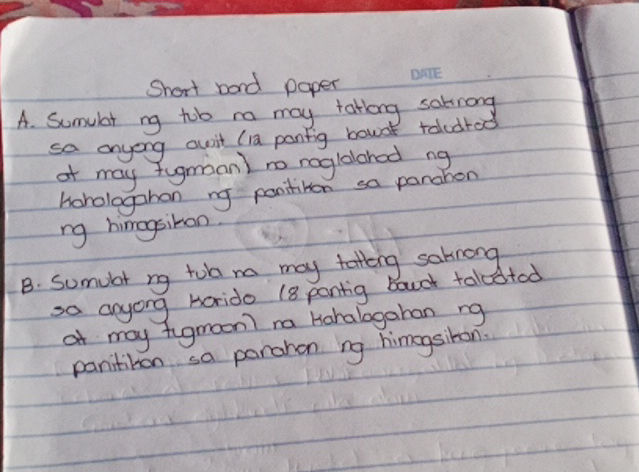 Short bond paper
DATE
A. Sumulat ng tula na may tatlong saknong
sa anyong awit (12 pantig bawat taludtod
at may tugmaan) na naglalahad ng
kahalagahan ng panitikan sa panahon
ng himagsikan.
B. Sumulat ng tula na may tatlong saknong
sa anyong korido (8 pantig bawat taludtod
at may tugmaan) na kahalagahan ng
panitikan sa panahon ng himagsikan.